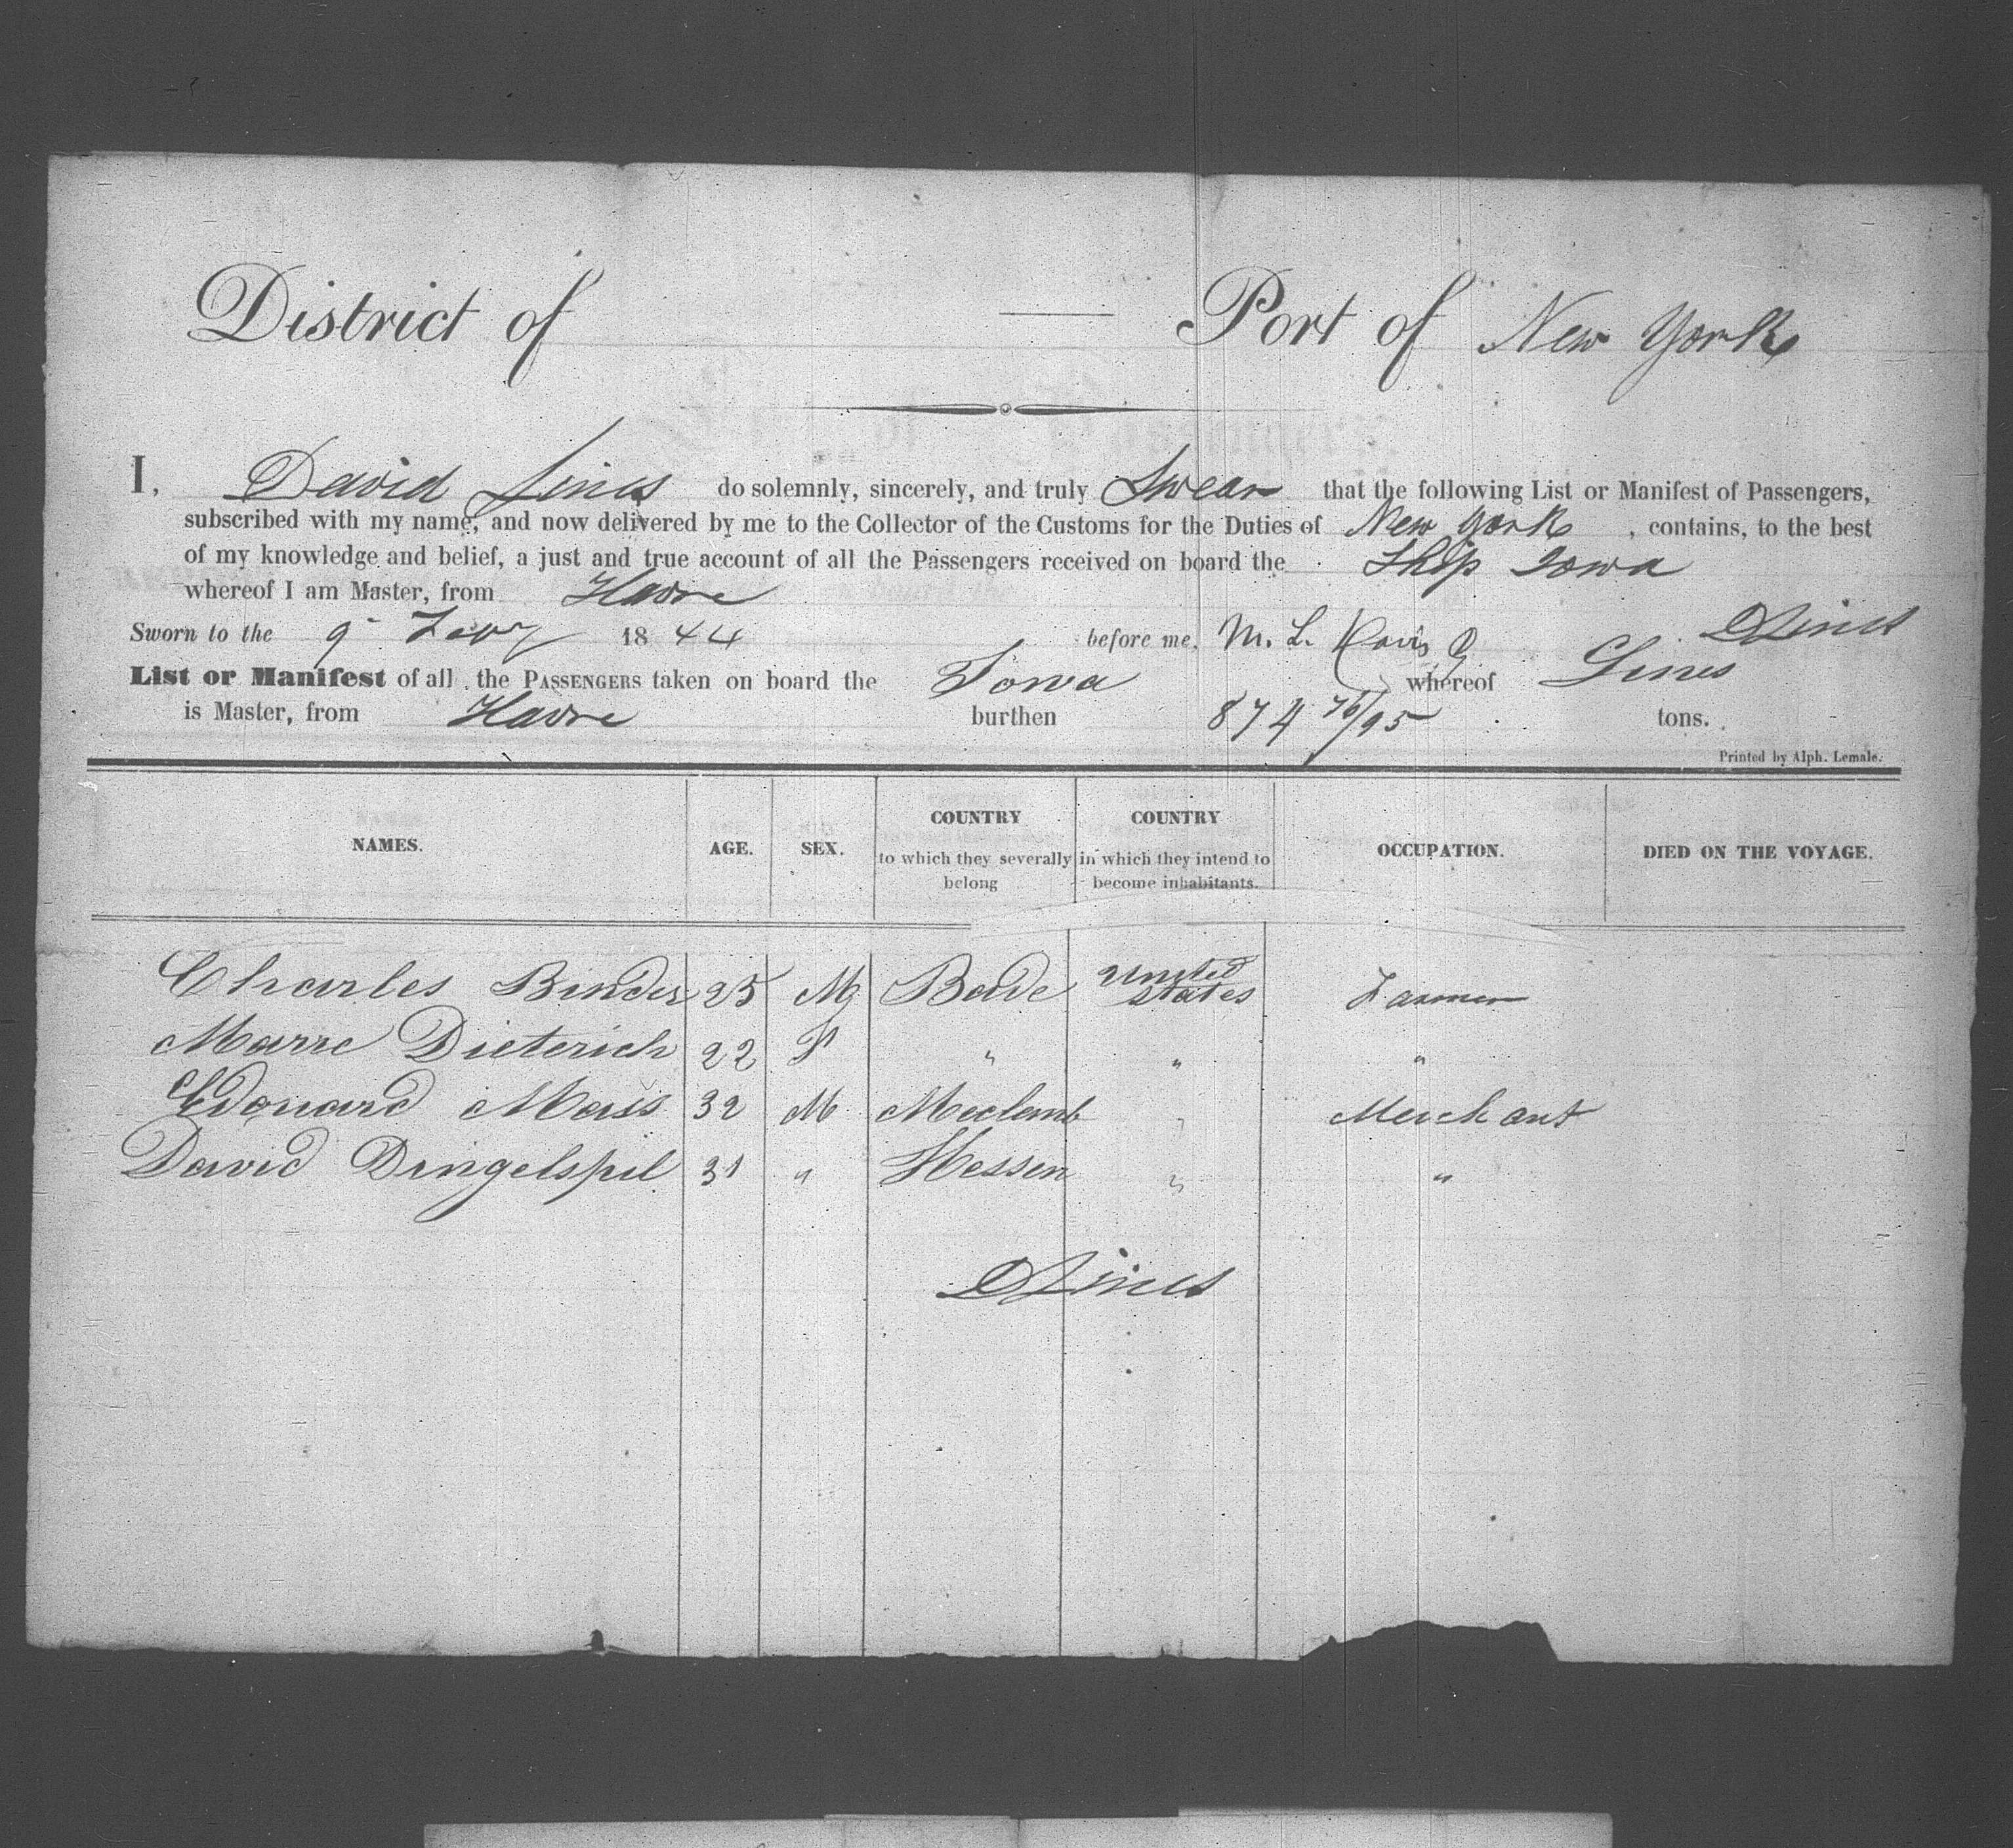 District of — Port of New York
I, David Lines do solemnly, sincerely, and truly Swear that the following List or Manifest of Passengers,
subscribed with my name, and now delivered by me to the Collector of the Customs for the Duties of New York, contains, to the best
of my knowledge and belief, a just and true account of all the Passengers received on board the Ship Iowa
whereof I am Master, from Havre
D Lines
Sworn to the 9 Feby 1844 before me, M. L. Davis
List or Manifest of all the PASSENGERS taken on board the Iowa whereof Lines
is Master, from Havre burthen 874 76/95 tons.
Printed by Alph. Lemale.
NAMES. AGE. SEX. COUNTRY to which they severally belong COUNTRY in which they intend to become inhabitants. OCCUPATION. DIED ON THE VOYAGE.
Charles Binder 25 M Bade United States Farmer
Marre Dieterich 22 F " " "
Edouard Mass 32 M Meclemb " Merchant
David Dingelspil 31 " Hessen " "
D Lines